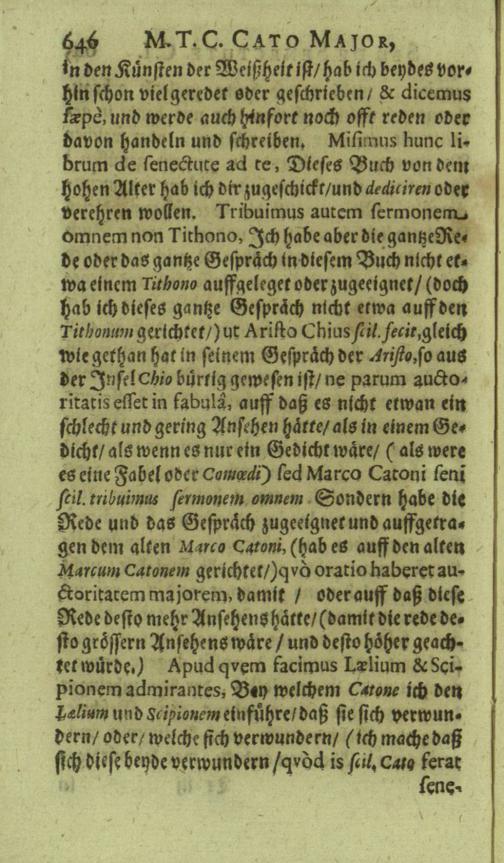 646 M. T. C. CATO MAJOR,
in den Künsten der Weißheit ist/ hab ich beydes vor-
hin schon viel geredet oder geschrieben/ & dicemus
sæpè, und werde auch hinfort noch offt reden oder
davon handeln und schreiben. Misimus hunc li-
brum de senectute ad te, Dieses Buch von dem
hohen Alter hab ich dir zugeschickt/ und dediciren oder
verehren wollen. Tribuimus autem sermonem
omnem non Tithono, Ich habe aber die gantze Re-
de oder das gantze Gespräch in diesem Buch nicht et-
wa einem Tithono auffgeleget oder zugeeignet/ (doch
hab ich dieses gantze Gespräch nicht etwa auff den
Tithonum gerichtet/) ut Aristo Chius scil. fecit, gleich
wie gethan hat in seinem Gespräch der Aristo, so aus
der Insel Chio bürtig gewesen ist/ ne parum aucto-
ritatis esset in fabulâ, auff daß es nicht etwan ein
schlecht und gering Ansehen hätte/ als in einem Ge-
dicht/ als wenn es nur ein Gedicht wäre/ ( als were
es eine Fabel oder Comœdi) sed Marco Catoni seni
scil. tribuimus sermonem omnem Sondern habe die
Rede und das Gespräch zugeeignet und auffgetra-
gen dem alten Marco Catoni, (hab es auff den alten
Marcum Catonem gerichtet/) qvò oratio haberet au-
ctoritatem majorem, damit / oder auff daß diese
Rede desto mehr Ansehens hätte/ (damit die rede de-
sto grössern Ansehens wäre / und desto höher geach-
tet würde.) Apud qvem facimus Lælium & Sci-
pionem admirantes, Bey welchem Catone ich den
Lælium und Scipionem einführe/ daß sie sich verwun-
dern/ oder/ welche sich verwundern/ (ich mache daß
sich diese beyde verwundern / qvòd is scil. Cato ferat
sene-